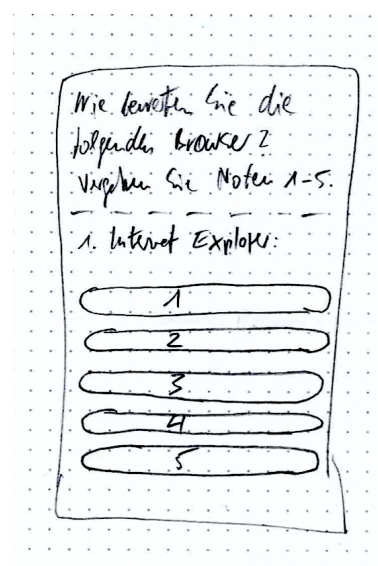 Wie bewerten Sie die
folgenden Browser?
Vergeben Sie Noten 1-5.
1. Internet Explorer:
1
2
3
4
5